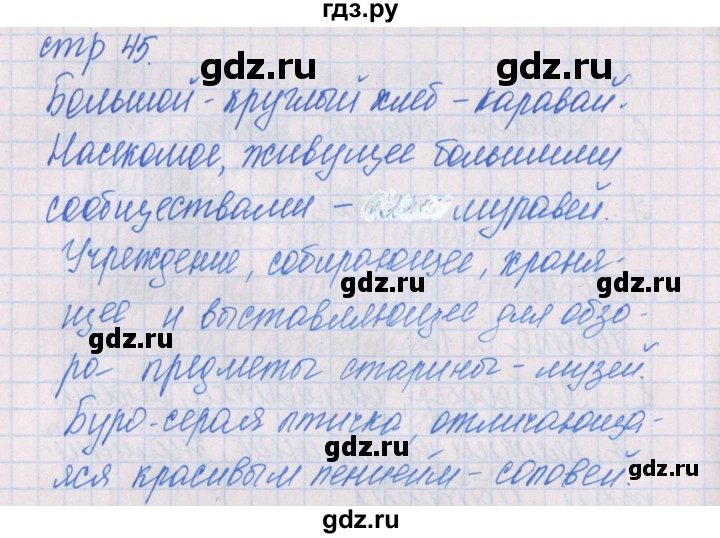 гдз.ру
стр 45.
gdz.ru gdz.ru
Большой - круглый хлеб - каравай.
Насекомое, живущее большими
сообществами - муравей.
Учреждение, собирающее, храня-
gdz.ru gdz.ru
щее и выставляющее для обзо-
ра- предметы старины - музей.
Буро-серая птичка, отличающа-
gdz.ru gdz.ru
яся красивым пением - соловей.
gdz.ru